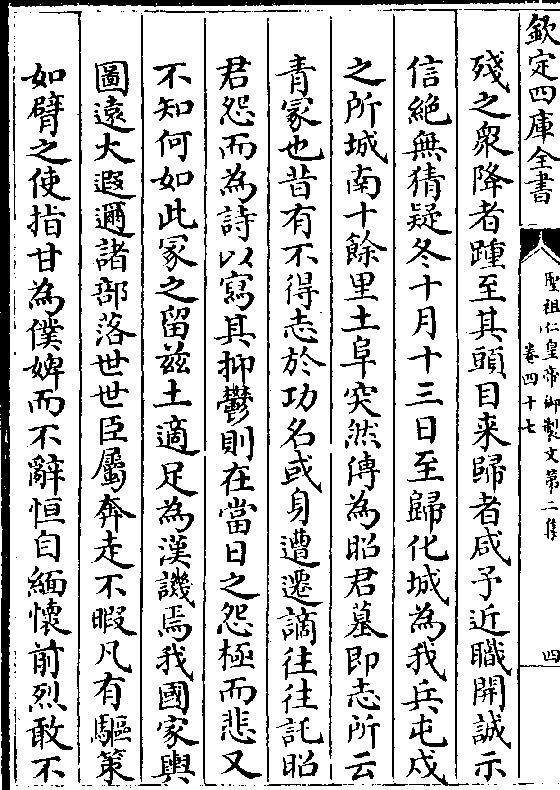 欽定四庫全書
聖祖仁皇帝御製文第二集
卷四十七
四
殘之衆降者踵至其頭目来歸者咸予近職開誠示
信絶無猜疑冬十月十三日至歸化城為我兵屯戍
之所城南十餘里土阜突然傳為昭君墓即志所云
青冡也昔有不得志於功名或身遭遷謫往往託昭
君怨而為詩以寫其抑鬱則在當日之怨極而悲又
不知何如此冡之留兹土適足為漢譏焉我國家輿
圖遠大遐邇諸部落世世臣屬奔走不暇凡有驅策
如臂之使指甘為僕婢而不辭恒自緬懷前烈敢不